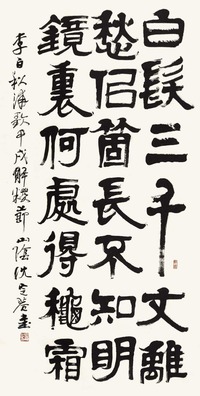 白髮三千丈離
愁佀箇長不知明
鏡裏何處得穐霜
李白秋浦歌甲戌解糉節山陰沈定盦書